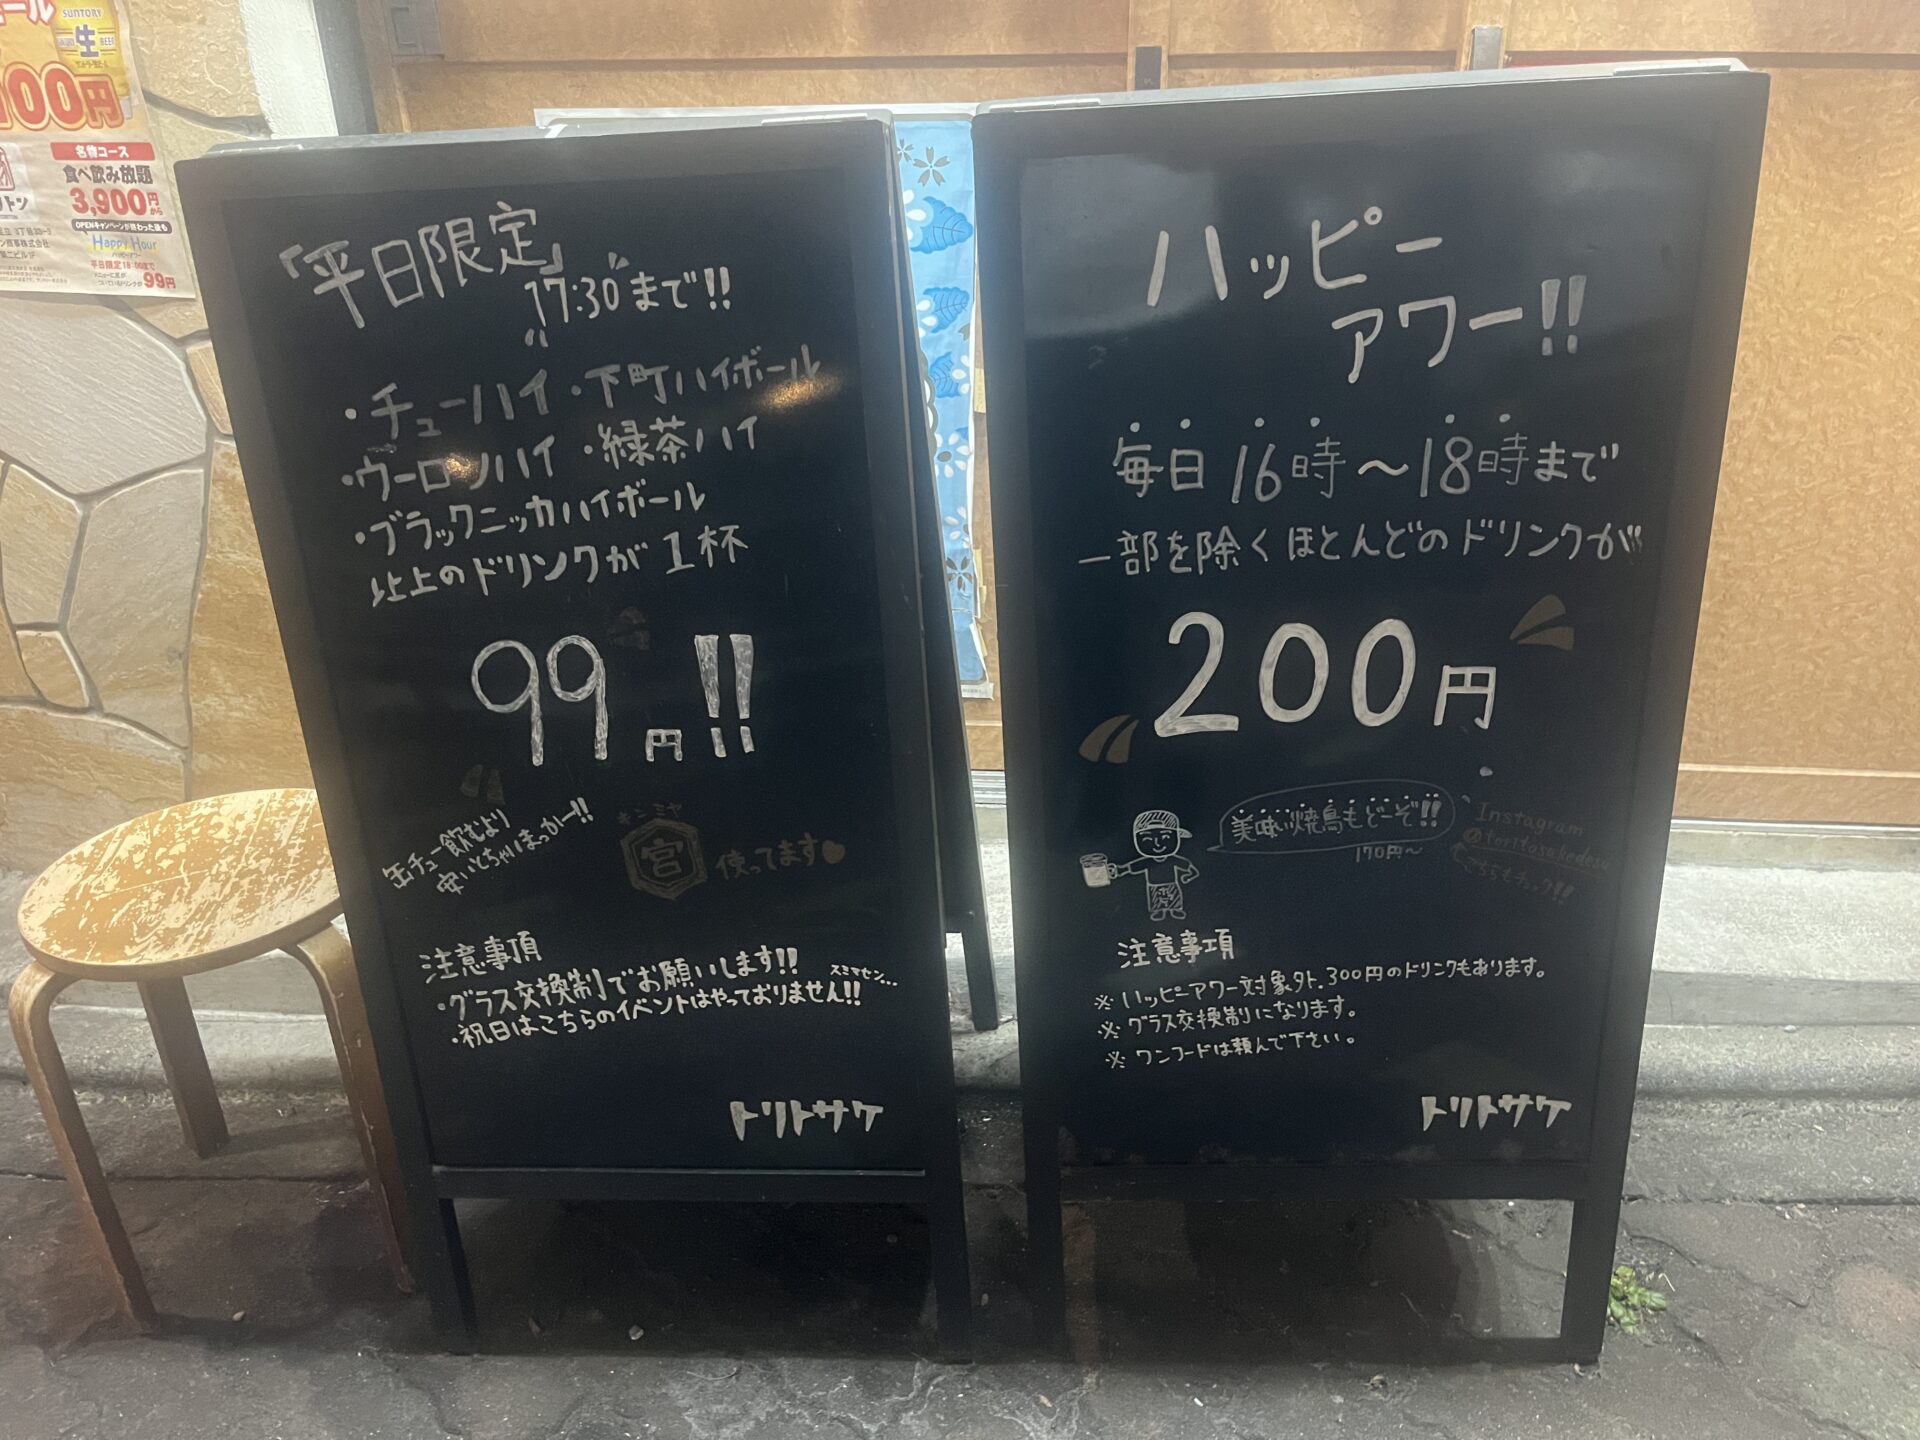 SUNTORY
生
BEER
100円
名物コース
食べ飲み放題
3,900円から
OPENキャンペーンが終わった後も
Happy Hour
ハッピーアワー
平日限定18:00まで
99円
「平日限定」
17:30まで!!
・チューハイ ・下町ハイボール
・ウーロンハイ ・緑茶ハイ
・ブラックニッカハイボール
以上のドリンクが 1杯
99円!!
缶チュー飲むより
安いとちゃいまっかー!!
キンミヤ
宮 使ってます
注意事項
・グラス交換制でお願いします!!
スミマセン...
・祝日はこちらのイベントはやっておりません!!
トリトサケ
ハッピー
アワー!!
毎日 16時〜18時まで
一部を除くほとんどのドリンクが
200円
美味い焼鳥もどーぞ!!
170円〜
Instagram
@toritosakedesu
こちらもチェック!!
注意事項
※ ハッピーアワー対象外、300円のドリンクもあります。
※ グラス交換制になります。
※ ワンフードは頼んで下さい。
トリトサケ